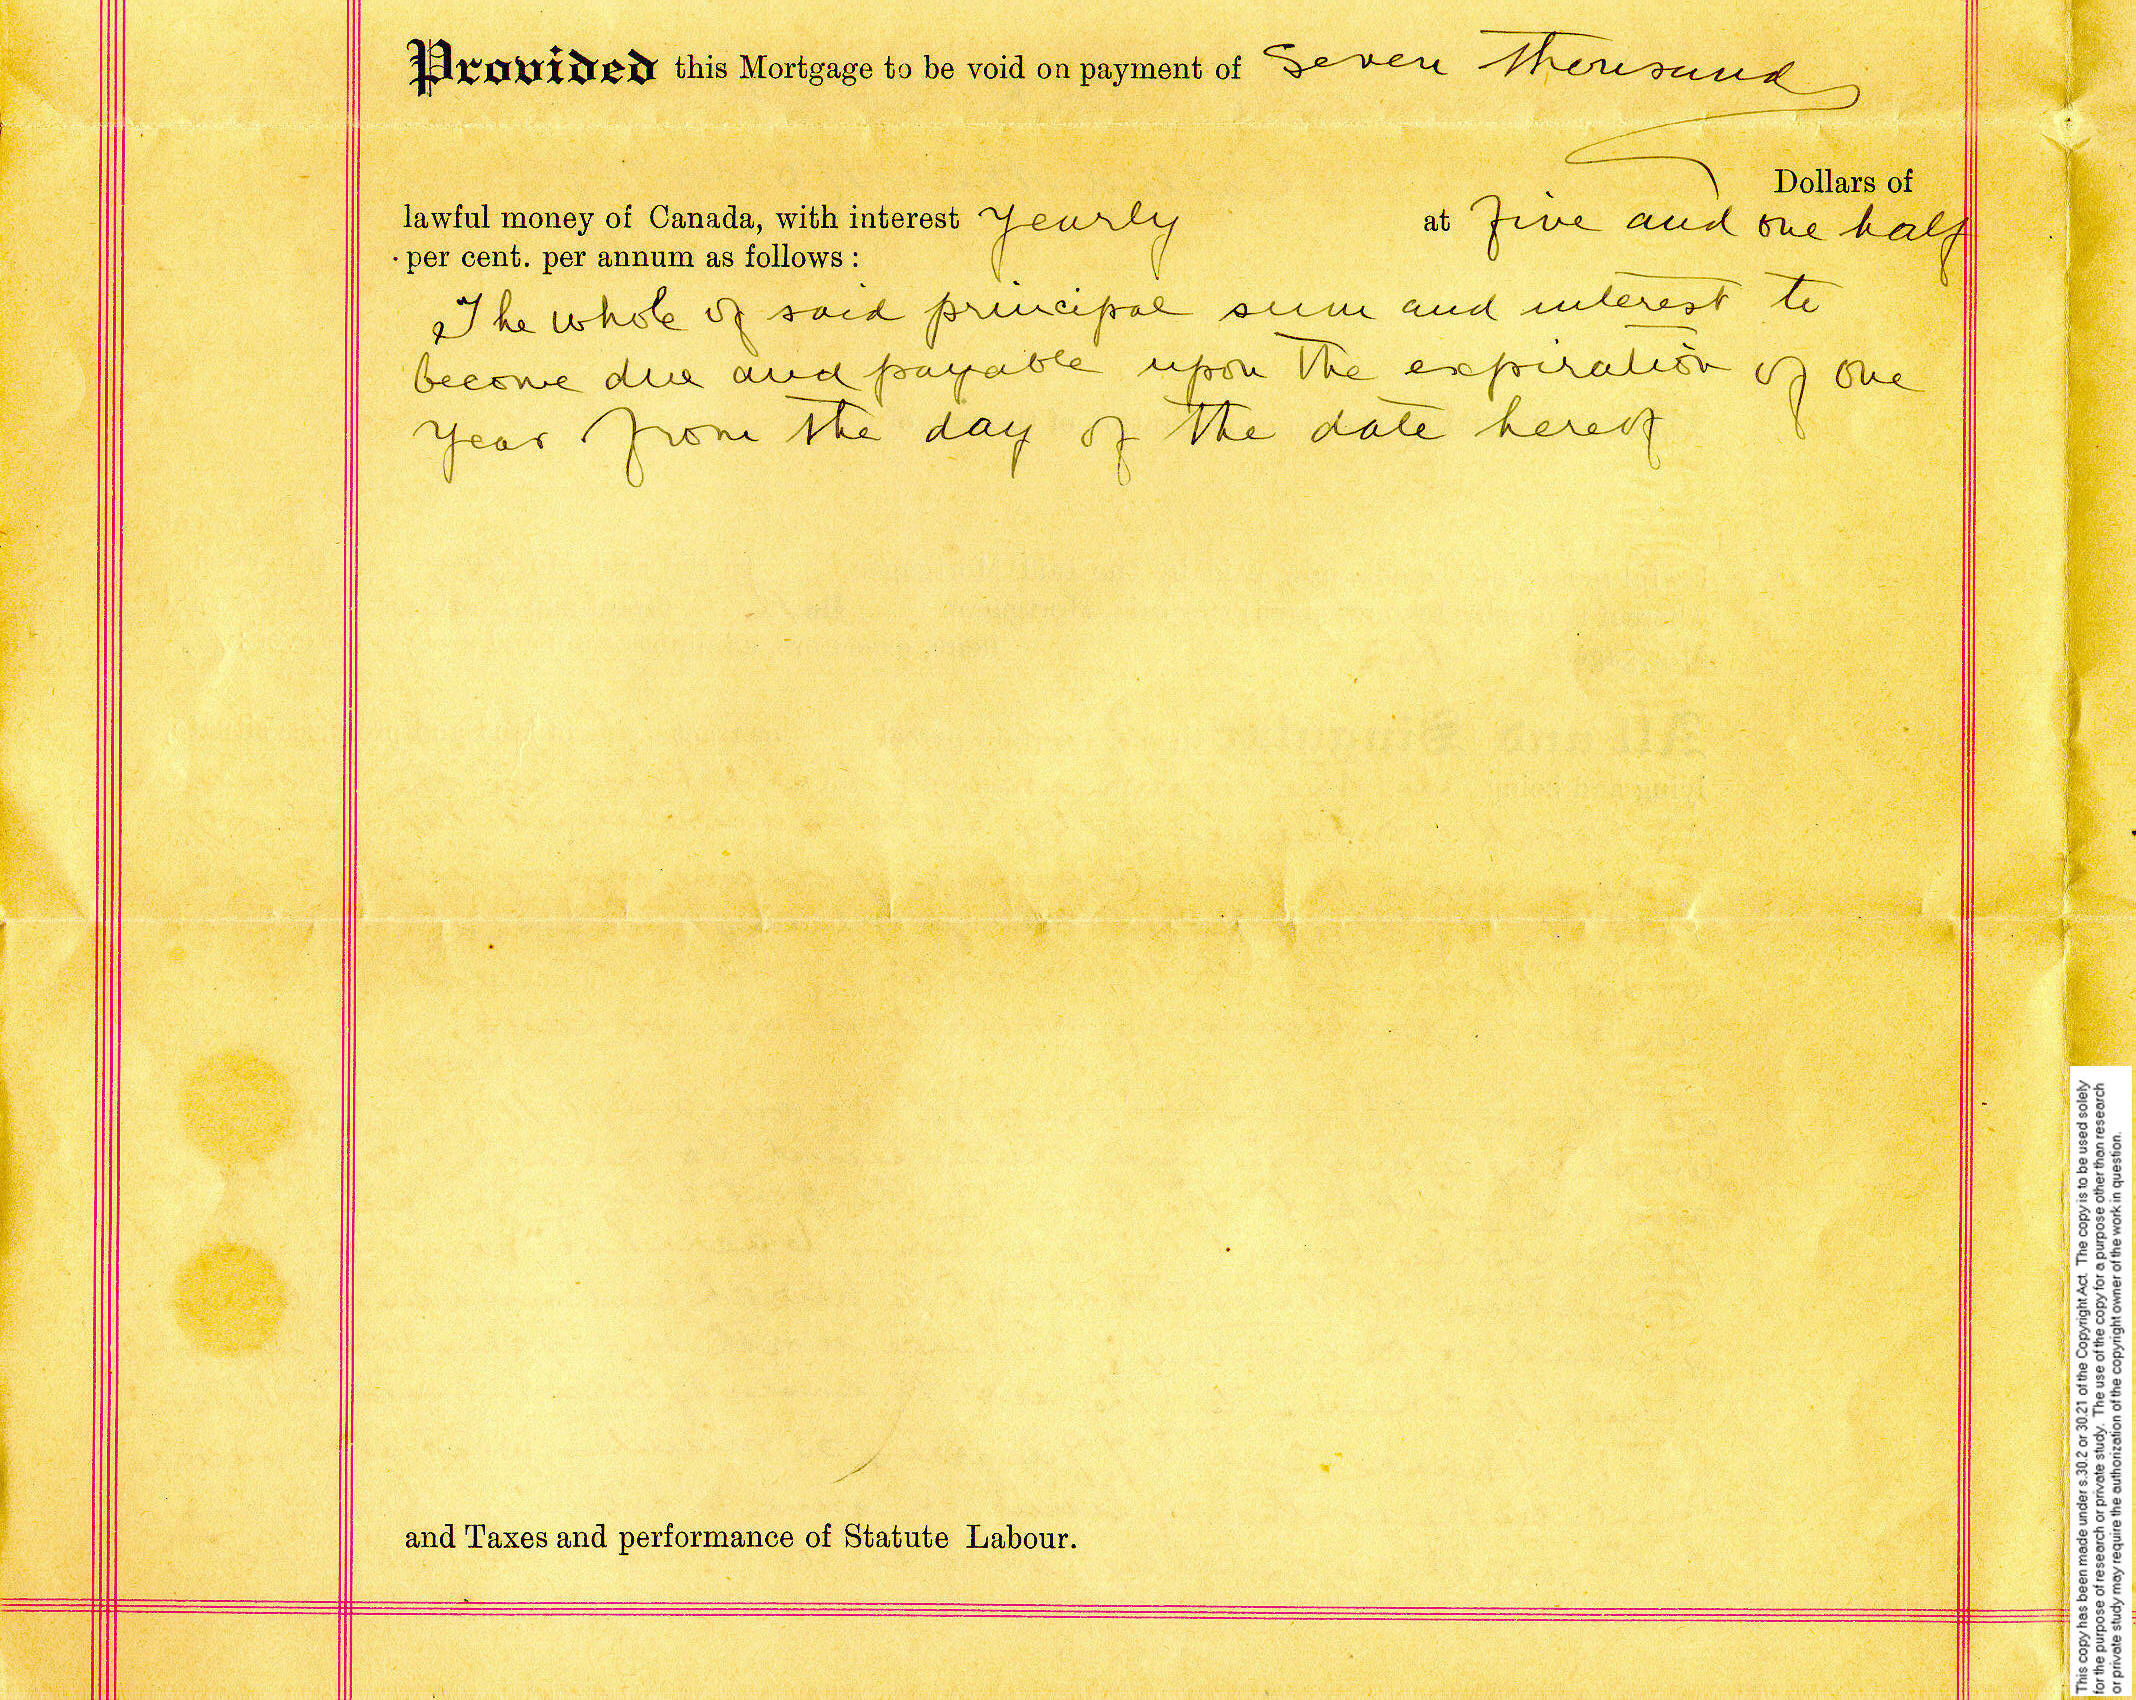 Provided this Mortgage to be void on payment of Seven Thousand
Dollars of
lawful money of Canada, with interest yearly at five and one half
per cent. per annum as follows :
The whole of said principal sum and interest to
become due and payable upon the expiration of one
year from the day of the date hereof
and Taxes and performance of Statute Labour.
This copy has been made under s.30.2 or 30.21 of the Copyright Act. The copy is to be used solely
for the purpose of research or private study. The use of the copy for a purpose other than research
or private study may require the authorization of the copyright owner of the work in question.